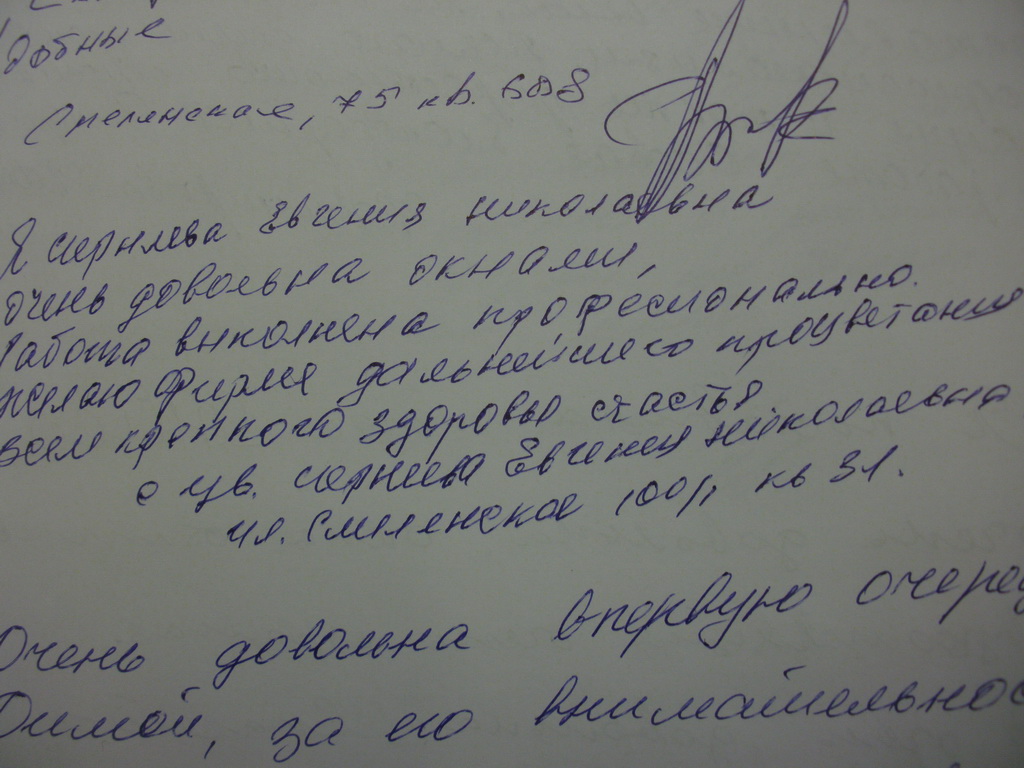 добные
75 кв. 688
Я Евгения Николаевна
очень довольна окнами,
Работа выполнена професионально.
желаю фирме дальнейшего процветания
всем крепкого здоровья счастья
с ув. Евгения Николаевна
ул. Смелянская кв 31.
Очень довольна впервую очеред
Димой, за его внимательнос